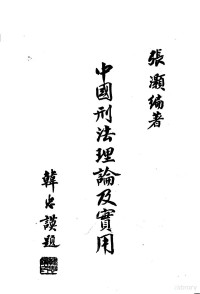 張灝編著
中國刑法理論及實用
韓忠謨題